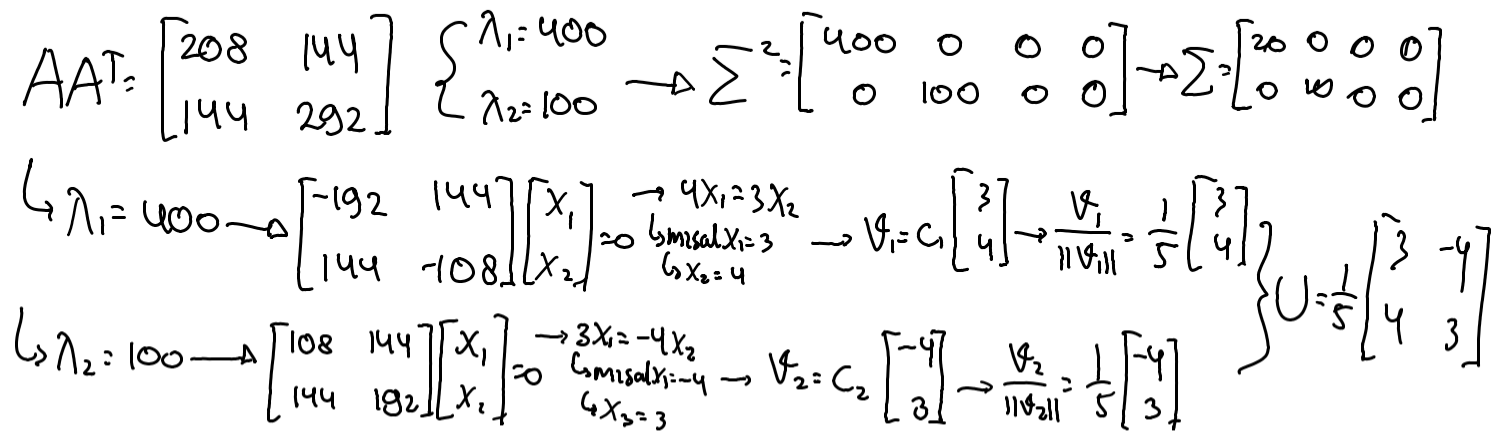 AAᵀ= [208 144; 144 292] { λ₁=400 λ₂=100 → Σ²= [400 0 0 0; 0 100 0 0] → Σ= [20 0 0 0; 0 10 0 0]
↳ λ₁=400 → [-192 144; 144 -108] [x₁; x₂] =0 → 4x₁=3x₂ ↳ misal x₁=3 ↳ x₂=4 → ϑ₁=C₁ [3; 4] → ϑ₁/||ϑ₁|| = 1/5 [3; 4]
↳ λ₂=100 → [108 144; 144 192] [x₁; x₂] =0 → 3x₁=-4x₂ ↳ misal x₁=-4 ↳ x₃=3 → ϑ₂=C₂ [-4; 3] → ϑ₂/||ϑ₂|| = 1/5 [-4; 3]
} U= 1/5 [3 -4; 4 3]